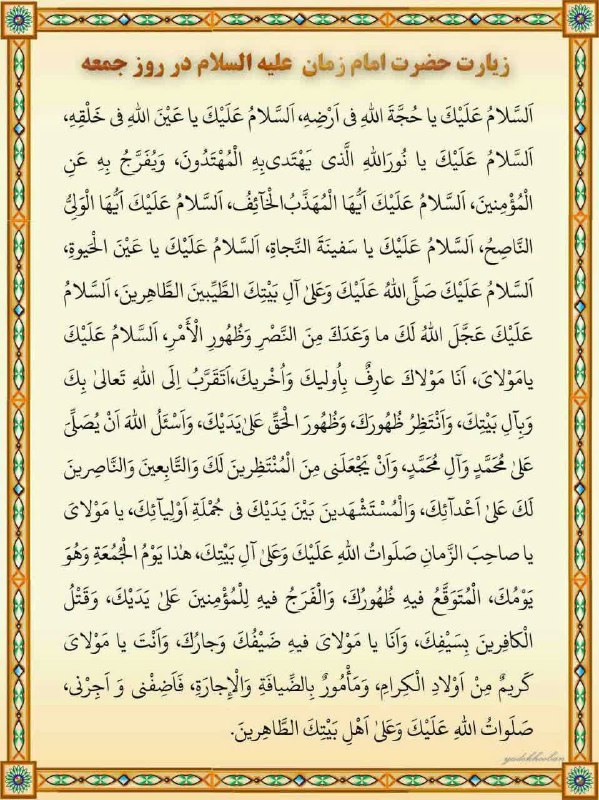 زیارت حضرت امام زمان علیه السلام در روز جمعه
اَلسَّلامُ عَلَيْكَ يا حُجَّةَ اللهِ فى اَرْضِهِ، اَلسَّلامُ عَلَيْكَ يا عَيْنَ اللهِ فى خَلْقِهِ،
اَلسَّلامُ عَلَيْكَ يا نُورَاللهِ الَّذى يَهْتَدى‌بِهِ الْمُهْتَدُونَ، وَيُفَرَّجُ بِهِ عَنِ
الْمُؤْمِنينَ، اَلسَّلامُ عَلَيْكَ اَيُّهَا الْمُهَذَّبُ‌الْخآئِفُ، اَلسَّلامُ عَلَيْكَ اَيُّهَا الْوَلِىُّ
النَّاصِحُ، اَلسَّلامُ عَلَيْكَ يا سَفينَةَ النَّجاةِ، اَلسَّلامُ عَلَيْكَ يا عَيْنَ الْحَيوةِ،
اَلسَّلامُ عَلَيْكَ صَلَّى‌اللهُ عَلَيْكَ وَعَلىٰ آلِ بَيْتِكَ الطَّيِّبينَ الطَّاهِرينَ، اَلسَّلامُ
عَلَيْكَ عَجَّلَ اللهُ لَكَ ما وَعَدَكَ مِنَ النَّصْرِ وَظُهُورِ الْأَمْرِ، اَلسَّلامُ عَلَيْكَ
يامَوْلاىَ، اَنَا مَوْلاكَ عارِفٌ بِاُوليكَ وَاُخْريكَ،اَتَقَرَّبُ اِلَى اللهِ تَعالىٰ بِكَ
وَبِآلِ بَيْتِكَ، وَاَنْتَظِرُ ظُهُورَكَ، وَظُهُورَ الْحَقِّ عَلىٰ‌يَدَيْكَ، وَاَسْئَلُ اللهَ اَنْ يُصَلِّىَ
عَلىٰ مُحَمَّدٍ وَآلِ مُحَمَّدٍ، وَاَنْ يَجْعَلَنى مِنَ الْمُنْتَظِرينَ لَكَ وَالتَّابِعينَ وَالنَّاصِرينَ
لَكَ عَلىٰ اَعْدآئِكَ، وَالْمُسْتَشْهَدينَ بَيْنَ يَدَيْكَ فى جُمْلَةِ اَوْلِيآئِكَ، يا مَوْلاىَ
يا صاحِبَ الزَّمانِ صَلَواتُ اللهِ عَلَيْكَ وَعَلىٰ آلِ بَيْتِكَ، هٰذا يَوْمُ الْجُمُعَةِ وَهُوَ
يَوْمُكَ، الْمُتَوَقَّعُ فيهِ ظُهُورُكَ، وَالْفَرَجُ فيهِ لِلْمُؤْمِنينَ عَلىٰ يَدَيْكَ، وَقَتْلُ
الْكافِرينَ بِسَيْفِكَ، وَاَنَا يا مَوْلاىَ فيهِ ضَيْفُكَ وَجارُكَ، وَاَنْتَ يا مَوْلاىَ
كَريمٌ مِنْ اَوْلادِ الْكِرامِ، وَمَأْمُورٌ بِالضِّيافَةِ وَالْإِجارَةِ، فَاَضِفْنى وَ اَجِرْنى،
صَلَواتُ اللهِ عَلَيْكَ وَعَلىٰ اَهْلِ بَيْتِكَ الطَّاهِرينَ.
yadekhooban